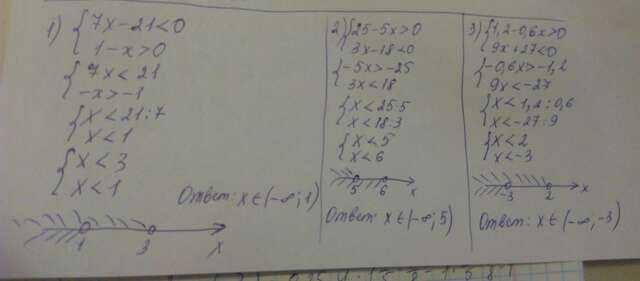 1) { 7x-21<0
1-x>0
{ 7x<21
-x>-1
{ x<21:7
x<1
{ x<3
x<1
Ответ: x∈(-∞;1)
1 3 x
2) { 25-5x>0
3x-18<0
{ -5x>-25
3x<18
{ x<25:5
x<18:3
{ x<5
x<6
5 6 x
Ответ: x∈(-∞;5)
3) { 1,2-0,6x>0
9x+27<0
{ -0,6x>-1,2
9x<-27
{ x<1,2:0,6
x<-27:9
{ x<2
x<-3
-3 2 x
Ответ: x∈(-∞;-3)